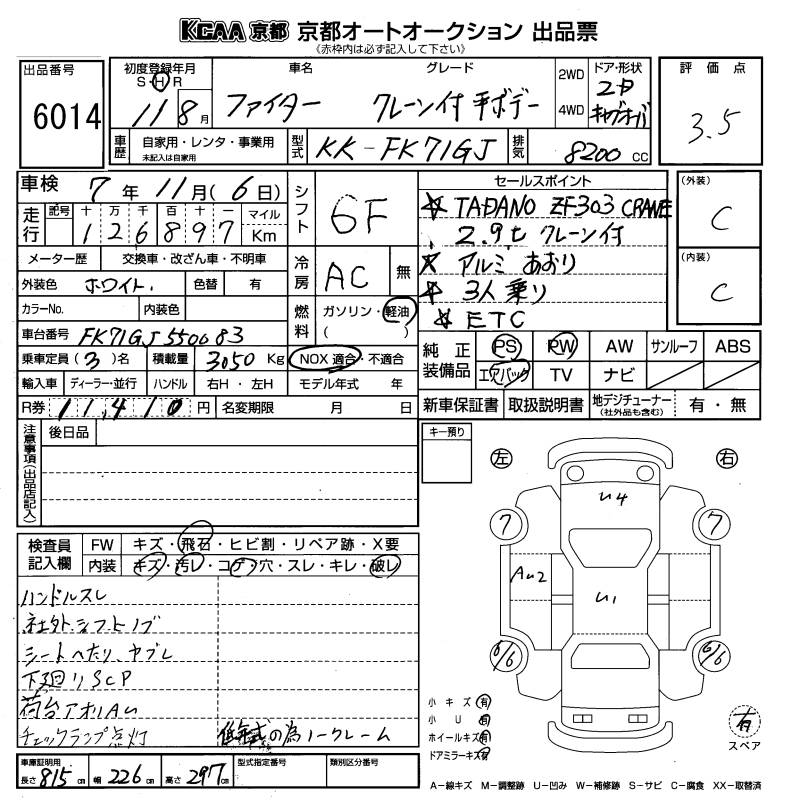 KCAA 京都 京都オートオークション 出品票
《赤枠内は必ず記入して下さい》
出品番号
6014
初度登録年月
S・H・R
11 8月
車名
グレード
ファイター クレーン付 平ボデー
2WD
4WD
ドア・形状
2D
キャブオーバ
評価点
3.5
車歴
自家用・レンタ・事業用
未記入は自家用
型式
KK-FK71GJ
排気
8200 CC
車検 7年 11月(6日)
シフト
6F
走行
記号 十 万 千 百 十 一 マイル
126897 Km
メーター歴 交換車・改ざん車・不明車
冷房
AC 無
外装色 ホワイト. 色替 有
カラーNo. 内装色
燃料
ガソリン・軽油
( )
車台番号 FK71GJ550683
乗車定員(3)名 積載量 3050 Kg NOX 適合・不適合
輸入車 ディーラー・並行 ハンドル 右H・左H モデル年式 年
R券 11,410 円 名変期限 月 日
セールスポイント
☆ TADANO ZF303 CRANE
. 2.9t クレーン付
☆ アルミ あおり
☆ 3人乗り
☆ ETC
(外装)
C
(内装)
C
純正装備品
PS PW AW サンルーフ ABS
エアバック TV ナビ
新車保証書 取扱説明書 地デジチューナー (社外品も含む) 有・無
注意事項(出品店記入)
後日品
キー預り
左 右
検査員記入欄
FW キズ・飛石・ヒビ割・リペア跡・X要
内装 キズ・汚レ・コゲ・穴・スレ・キレ・破レ
ハンドルスレ
社外シフトノブ
シートへたり、ヤブレ
下廻りSCP
荷台アオリAU
チェックランプ点灯 低年式の為ノークレーム
U4
7 7
AU2
U1
6/6 6/6
小キズ 有
小U 有
ホイールキズ 有
ドアミラーキズ 有
有
スペア
車庫証明用
長さ 815 cm 幅 226 cm 高さ 297 cm
型式指定番号
類別区分番号
A―線キズ M―調整跡 U―凹み W―補修跡 S―サビ C―腐食 XX―取替済